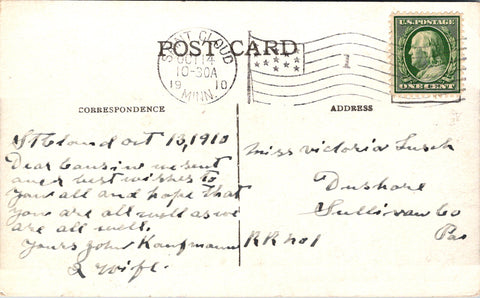 POST CARD
SAINT CLOUD
OCT 14
10-30A
1910
MINN.
1
U.S. POSTAGE
ONE CENT
CORRESPONDENCE
ADDRESS
St Cloud Oct 13, 1910
Dear Cousine we sent
aner best wishes to
you all and hope that
you are all well as we
are all well.
Yours John Kaufmann
& wife.
Miss Victoria Lusch
Dushore
Sullivan Co
RR no 1 Pa